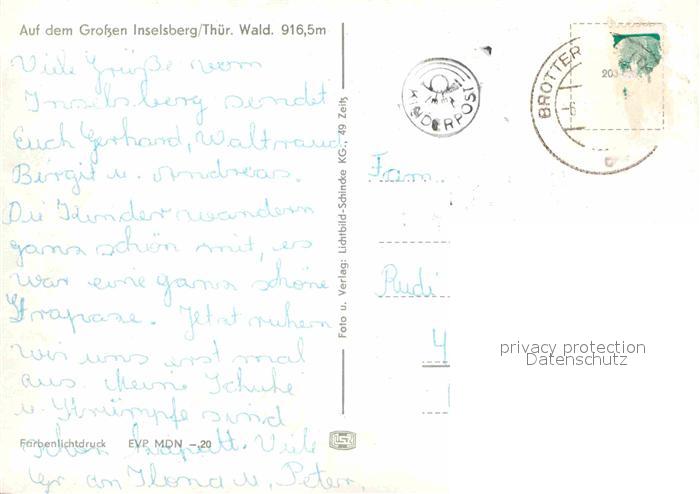 Auf dem Großen Inselsberg/Thür. Wald. 916,5m
Viele Grüße vom
Inselsberg sendet
Euch Gerhard, Waltraud
Birgit u. Andreas.
Die Kinder wandern
ganz schön mit, es
war eine ganz schöne
Strapaze. Jetzt ruhen
wir uns erst mal
aus. Meine Schuhe
u. Strümpfe sind
schon kaputt. Viele
Gr. an Ilona u. Peter.
Farbenlichtdruck EVP MDN -,20
Foto u. Verlag: Lichtbild-Schincke KG., 49 Zeitz
KINDERPOST
BROTTER
203
Fam.
Rudi
4
privacy protection
Datenschutz